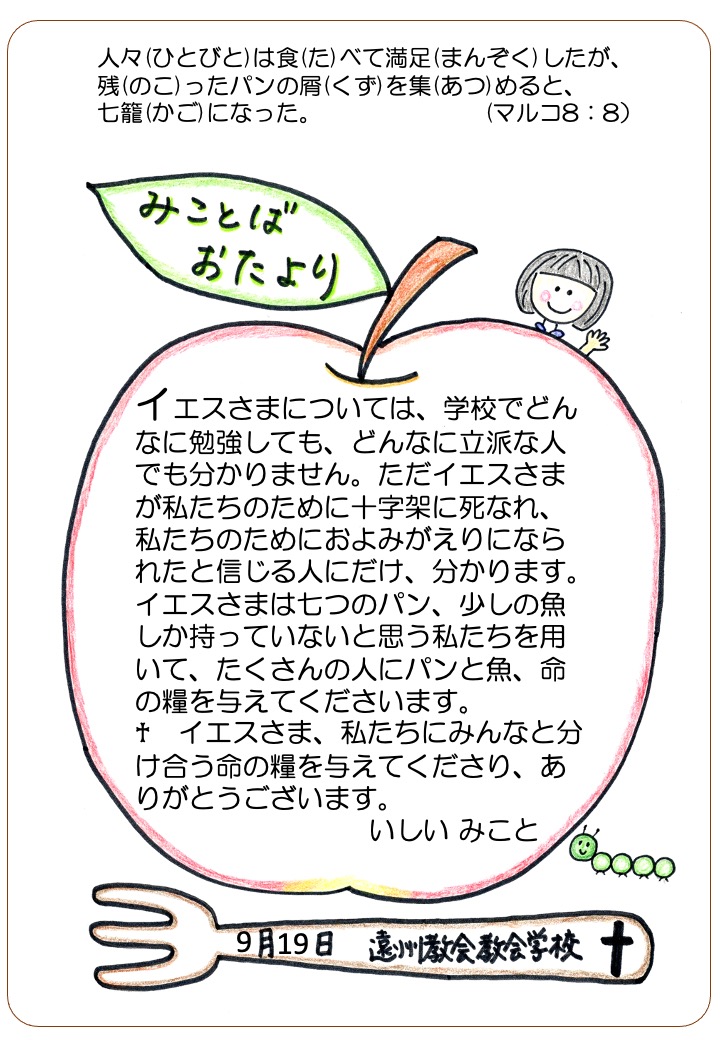 人々(ひとびと)は食(た)べて満足(まんぞく)したが、
残(のこ)ったパンの屑(くず)を集(あつ)めると、
七籠(かご)になった。 (マルコ8：8)
みことば
おたより
イエスさまについては、学校でどん
なに勉強しても、どんなに立派な人
でも分かりません。ただイエスさま
が私たちのために十字架に死なれ、
私たちのためにおよみがえりになら
れたと信じる人にだけ、分かります。
イエスさまは七つのパン、少しの魚
しか持っていないと思う私たちを用
いて、たくさんの人にパンと魚、命
の糧を与えてくださいます。
✝ イエスさま、私たちにみんなと分
け合う命の糧を与えてくださり、あ
りがとうございます。
いしい みこと
9月19日 遠州教会教会学校